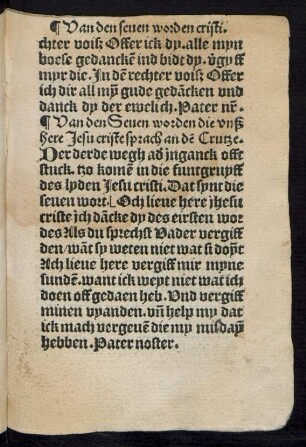 ¶ Van den seuen worden cristi.
chter voisʒ Offer ick dy. alle myn
boese gedanckē ind bidt dy. v̄gyff
myr die. In dē rechter voisʒ Offer
ich dir all mȳ gude gedācken vnd
danck dy der ewelich. Pater nr̄.
¶ Van den Seuen worden die vnß
here Jesu criste sprach an dē Crutze.
Der derde wegh ad' jnganck offt
stuck. tzo komē in die funtgruyff
des lyden Jesu cristi. Dat synt die
seuen wort. Och lieue here jhesu
criste jch dācke dy des eirsten wor
des Als du sprechst Vader vergiff
den/ wāt sy weten niet wat si doȳt
Ach lieue here vergiff mir myne
sundē. want ick weyt niet wat ich
doen off gedaen heb. Vnd vergiff
minen vyanden. vn̄ help my dat
ick mach vergeuē die my misdaȳ
hebben. Pater noster.